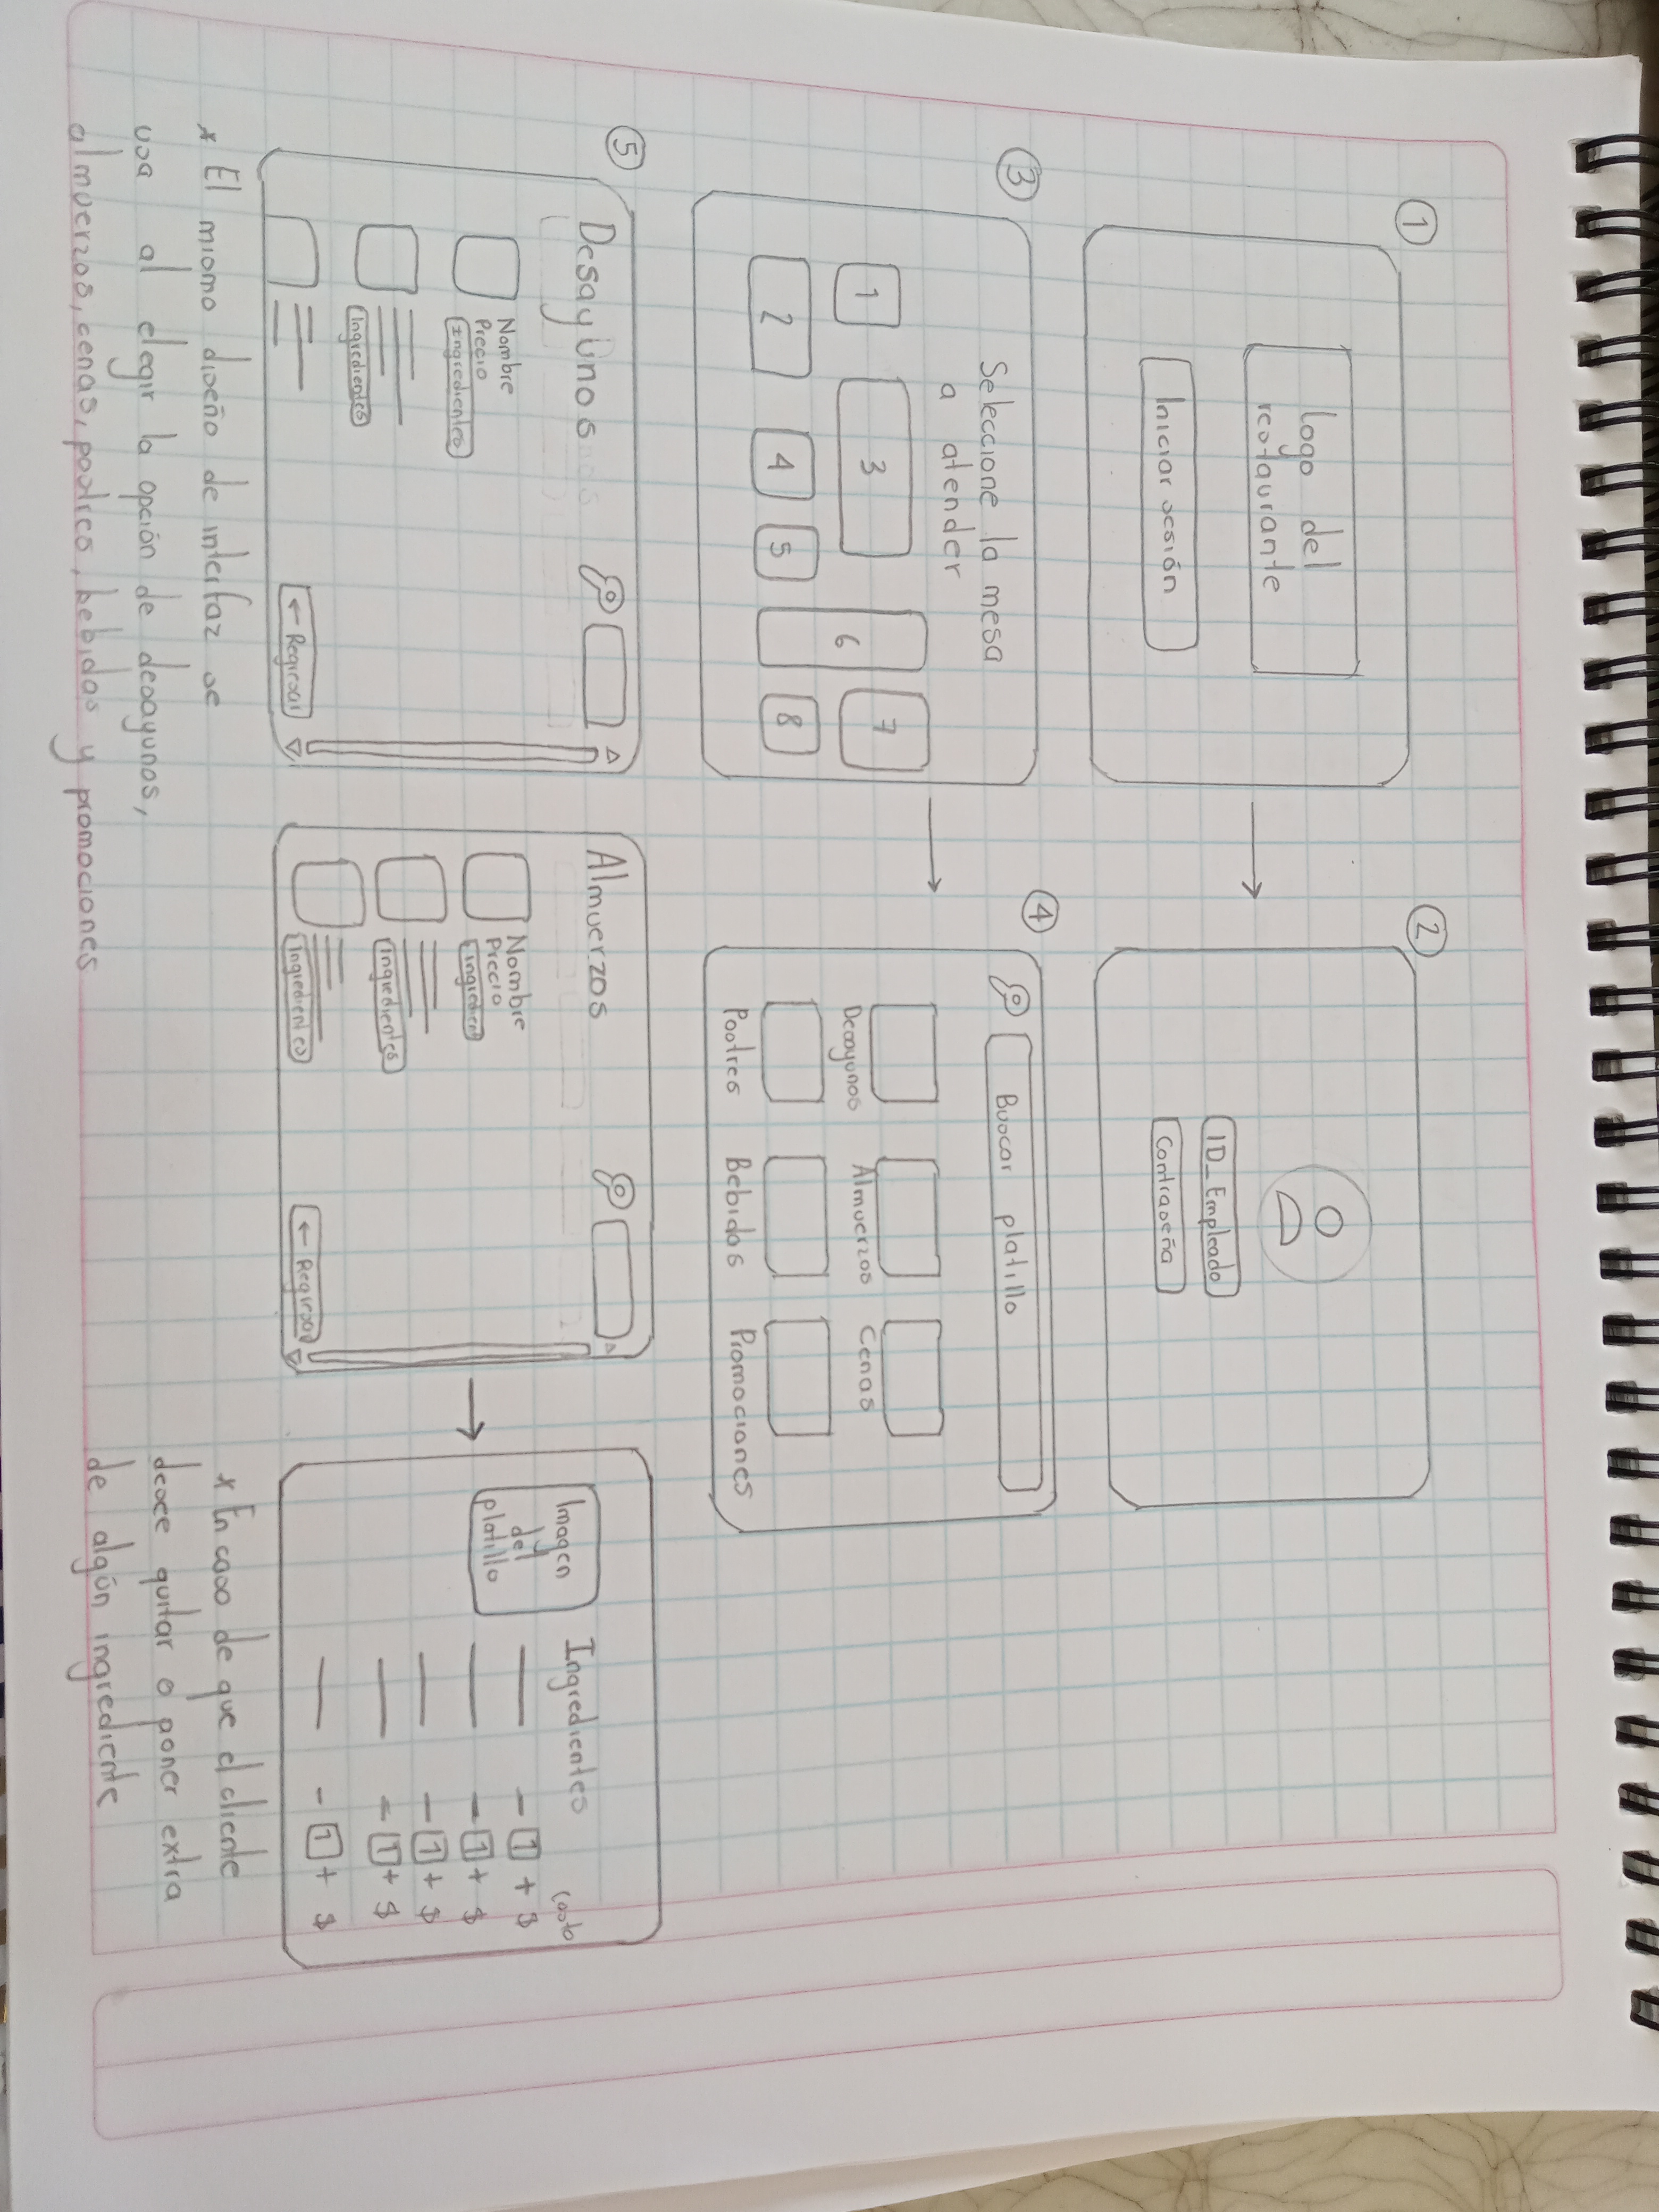 1
Logo del
restaurante
Iniciar sesión
2
ID_Empleado
Contraseña
3
Seleccione la mesa
a atender
1
3
6
7
2
4
5
8
4
Buscar platillo
Desayunos Almuerzos Cenas
Postres Bebidas Promociones
5
Desayunos
Nombre
Precio
Ingredientes
Ingredientes
← Regresar
Almuerzos
Nombre
Precio
Ingredient
Ingredientes
Ingredientes
← Regresar
Imagen
del
platillo
Ingredientes
Costo
- 1 + $
- 1 + $
- 1 + $
- 1 + $
- 1 + $
* El mismo diseño de interfaz se
usa al elegir la opción de desayunos,
almuerzos, cenas, postres, bebidas y promociones
* En caso de que el cliente
desee quitar o poner extra
de algún ingrediente